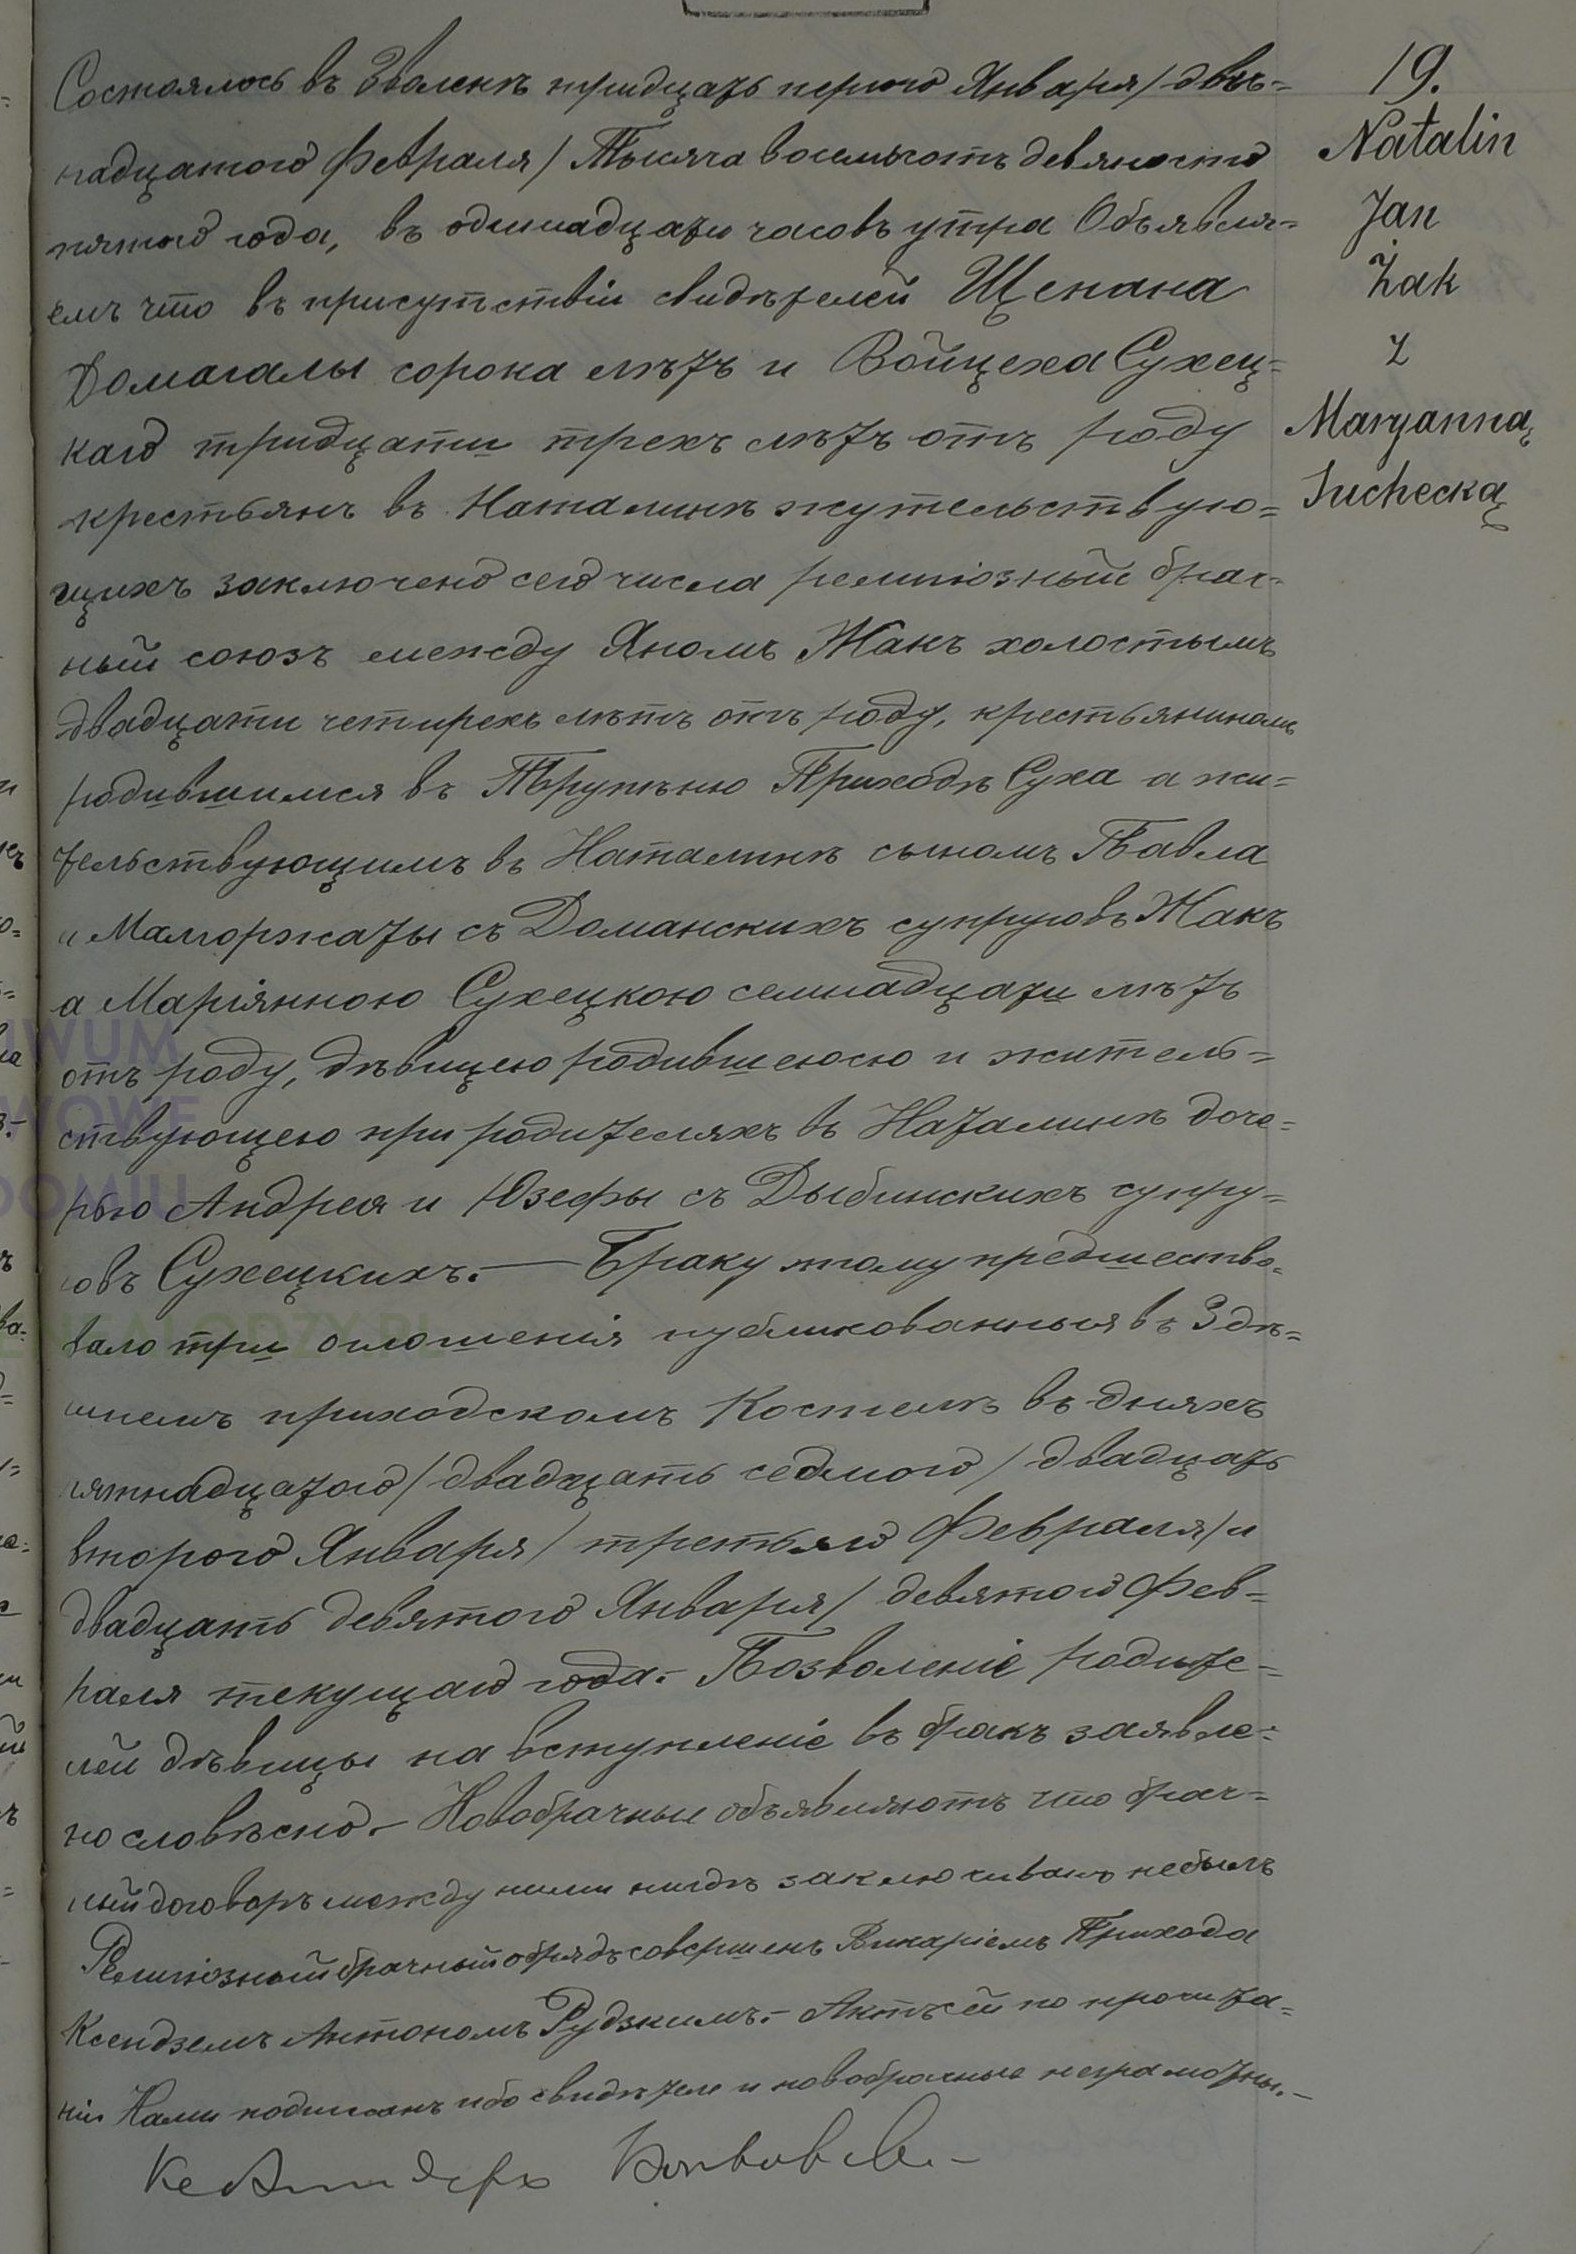 19.
Natalin
Jan
Żak
z
Maryanną
Suchecką
Состоялось въ Зволенѣ тридцать перваго Января / двѣ=
надцатого Февраля / Тысяча восемьсотъ девяносто
пятого года, въ одинадцати часовъ утра Объявля=
емъ что въ присутствіи свидѣтелей Щепана
Домагалы сорока лѣтъ и Войцеха Сухец=
каго тридцати трехъ лѣтъ отъ роду
крестьянъ въ Наталинѣ жутельствую=
щихъ заключено сего числа религіозный брач=
ный союзъ между Яномъ Жакъ холостымъ
двадцати четырехъ лѣтъ отъ роду, крестьяниномъ
родившимся въ Приходѣ Суха а жи=
тельствующимъ въ Наталинѣ сыномъ Павла
и Малгоржаты съ Доманскихъ супруговъ Жакъ
а Маріянною Сухецкою семнадцати лѣтъ
отъ роду, дѣвицею родившеюсю и житель=
ствующею при родителяхъ въ Наталинѣ доче=
рью Андрея и Юзефы съ Дыбинскихъ супру=
говъ Сухецкихъ.— Браку этому предшество=
вало три оглошенія публикованныя въ Здѣ=
шнемъ приходскомъ Костелѣ въ дняхъ
пятнадцатого / двадцать седмого / двадцать
второго Января / третьяго Февраля / и
двадцать девятого Января / девятого Фев=
раля текущаго года.- Позволеніе родите=
лей дѣвицы на вступленіе въ бракъ заявле=
но словѣсно.- Новобрачные объявляютъ что брач=
ный договоръ между ними нигдѣ заключиванъ небылъ
Религіозный брачный обрядъ совершенъ Викаріемъ Прихода
Ксендземъ Антономъ Рудзкимъ.- Актъ сей по прочита=
ніи Нами подписанъ ибо свидѣтели и новобрачные неграмотны.-